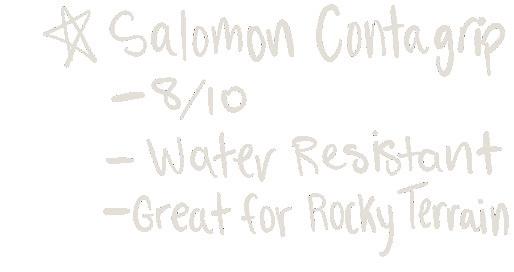 ☆ Salomon Contagrip
- 8/10
- Water Resistant
- Great for Rocky Terrain